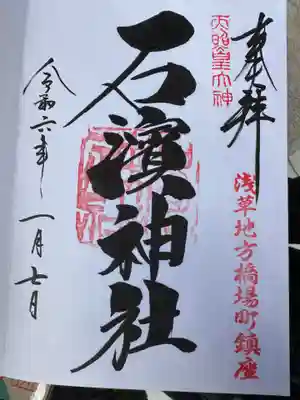 奉拝
天照皇大神
浅草地方橋場町鎮座
石濱神社
令和六年一月七日